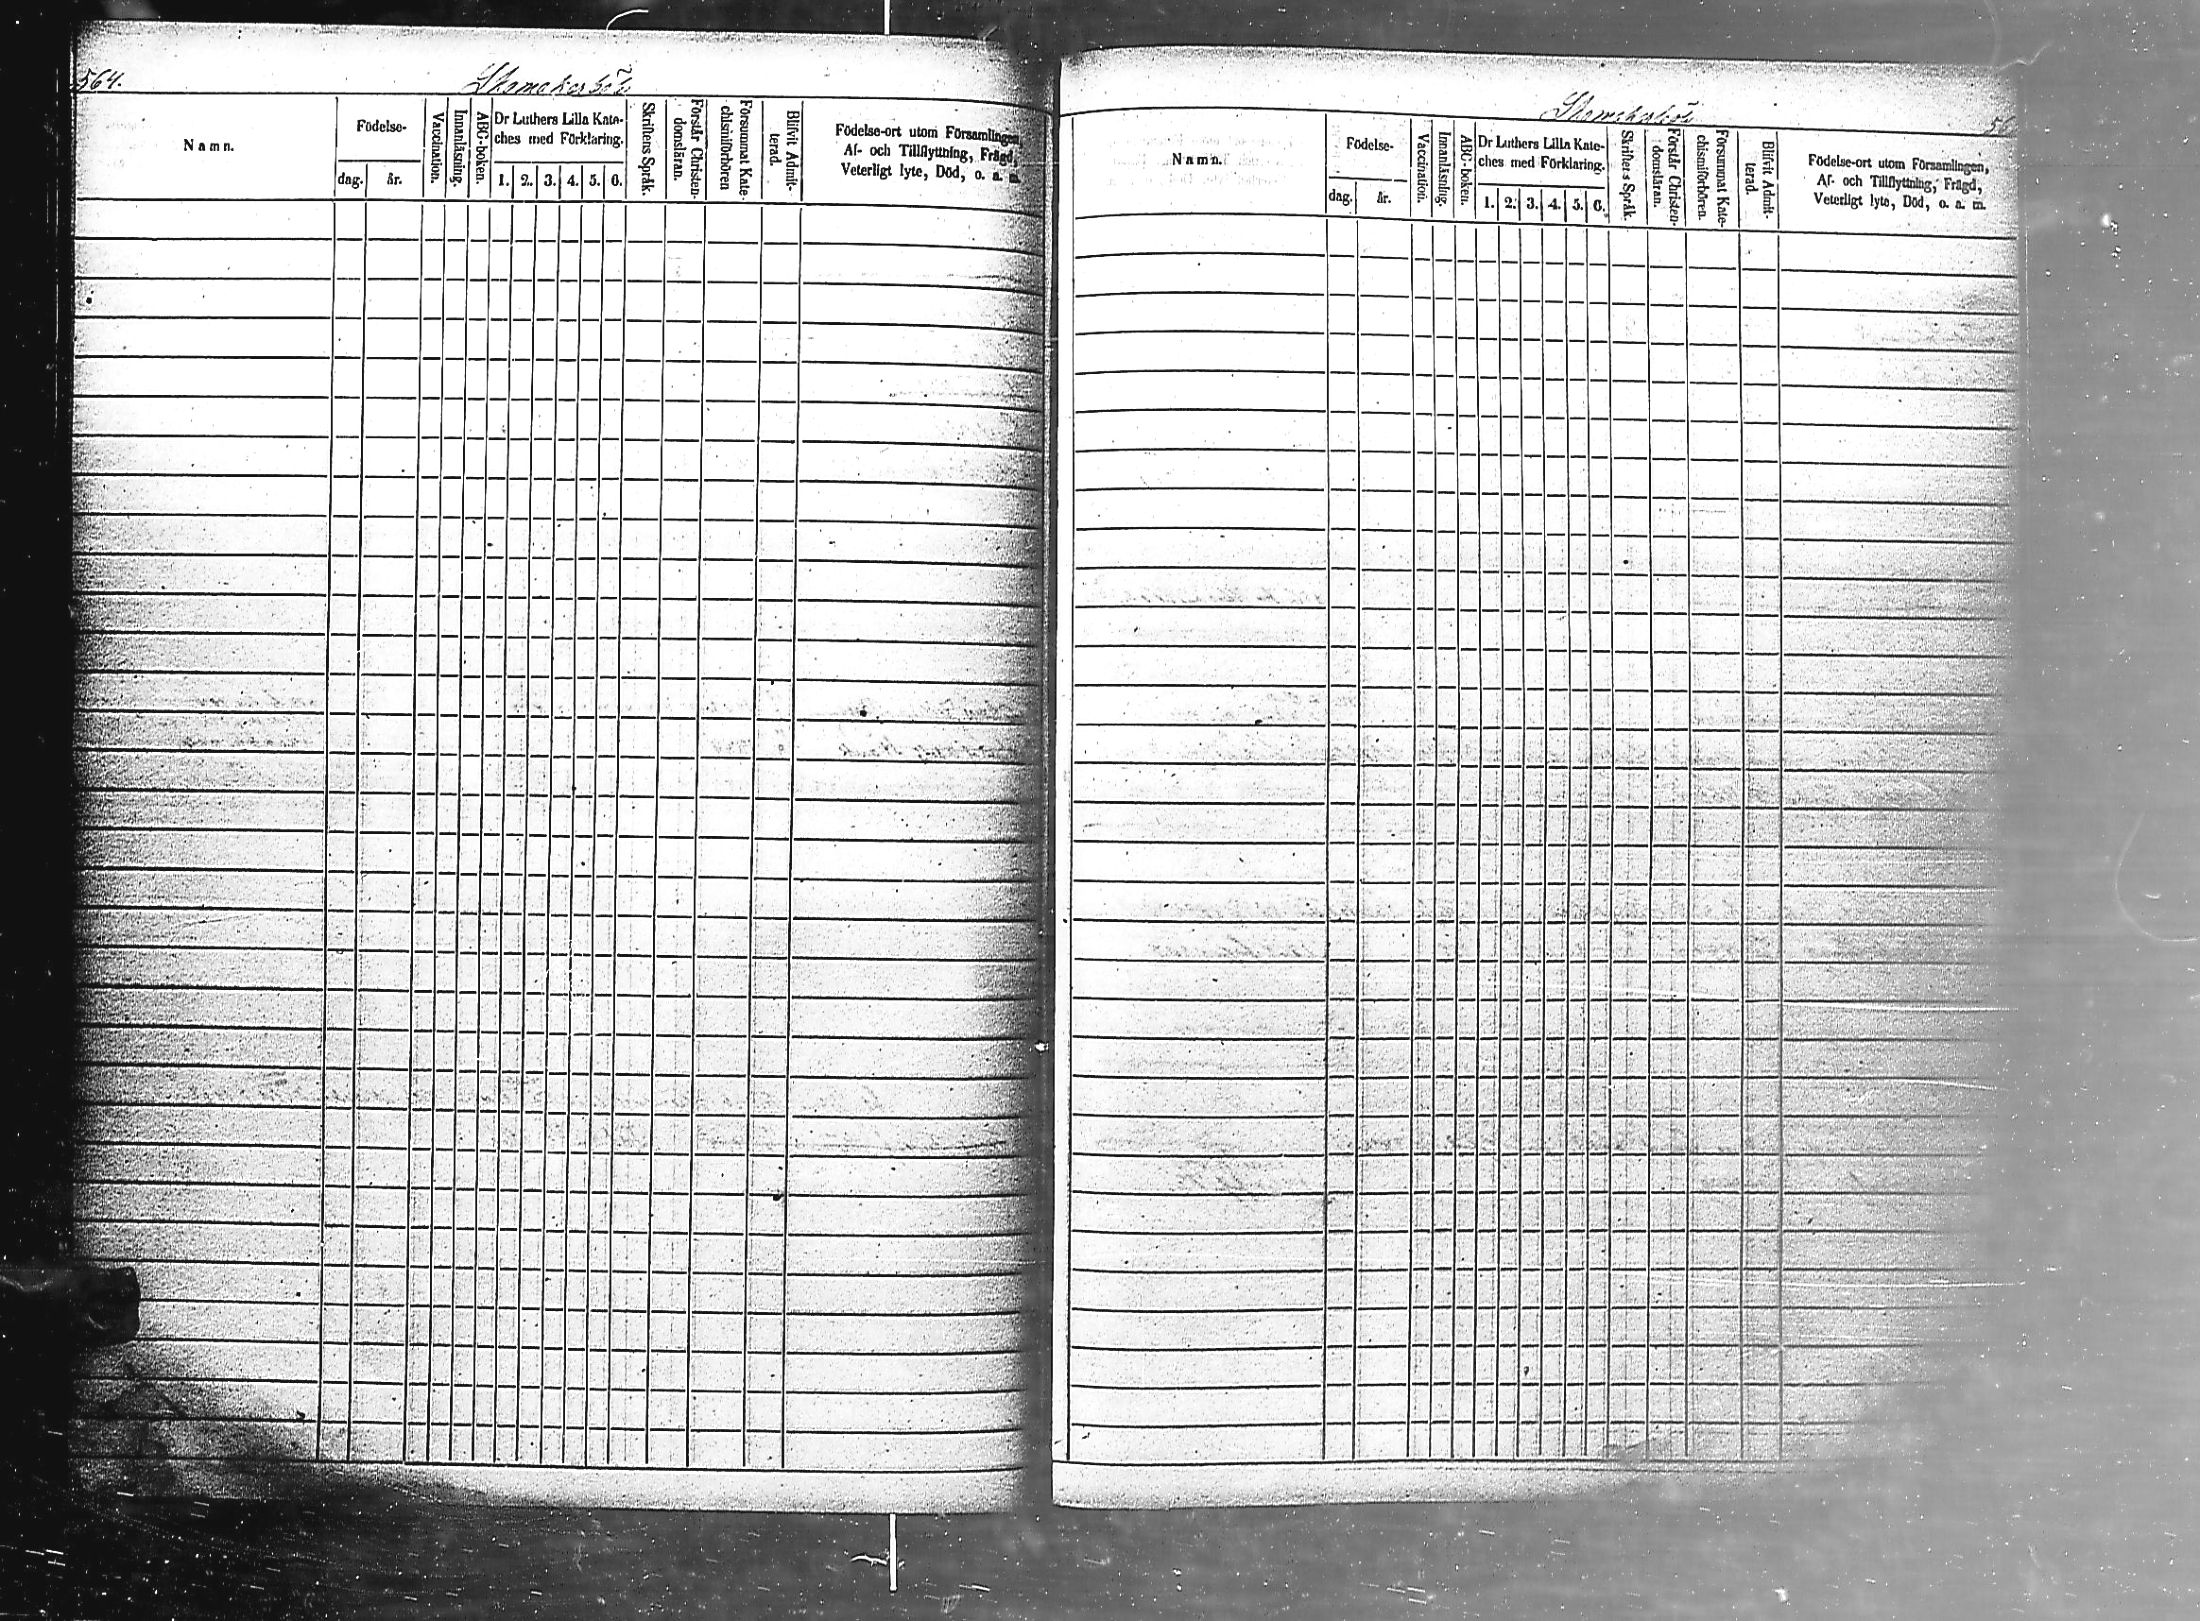 564.
Skomakarböle
Namn.
Födelse-
dag.
år.
Vaccination.
Innanläsning.
ABC-boken.
Dr Luthers Lilla Kate-
ches med Förklaring.
1. 2. 3. 4. 5. 6.
Skriftens Språk.
Förstår Christen-
domsläran.
Försummat Kate-
chismiförhören
Blifvit Admit-
terad.
Födelse-ort utom Församlingen,
Af- och Tillflyttning, Frägd,
Veterligt lyte, Död, o. a. m.
Skomakarböle
56
Namn.
Födelse-
dag.
år.
Vaccination.
Innanläsning.
ABC-boken.
Dr Luthers Lilla Kate-
ches med Förklaring.
1. 2. 3. 4. 5. 6.
Skriftens Språk.
Förstår Christen-
domsläran.
Försummat Kate-
chismiförhören.
Blifvit Admit-
terad.
Födelse-ort utom Församlingen,
Af- och Tillflyttning, Frägd,
Veterligt lyte, Död, o. a. m.